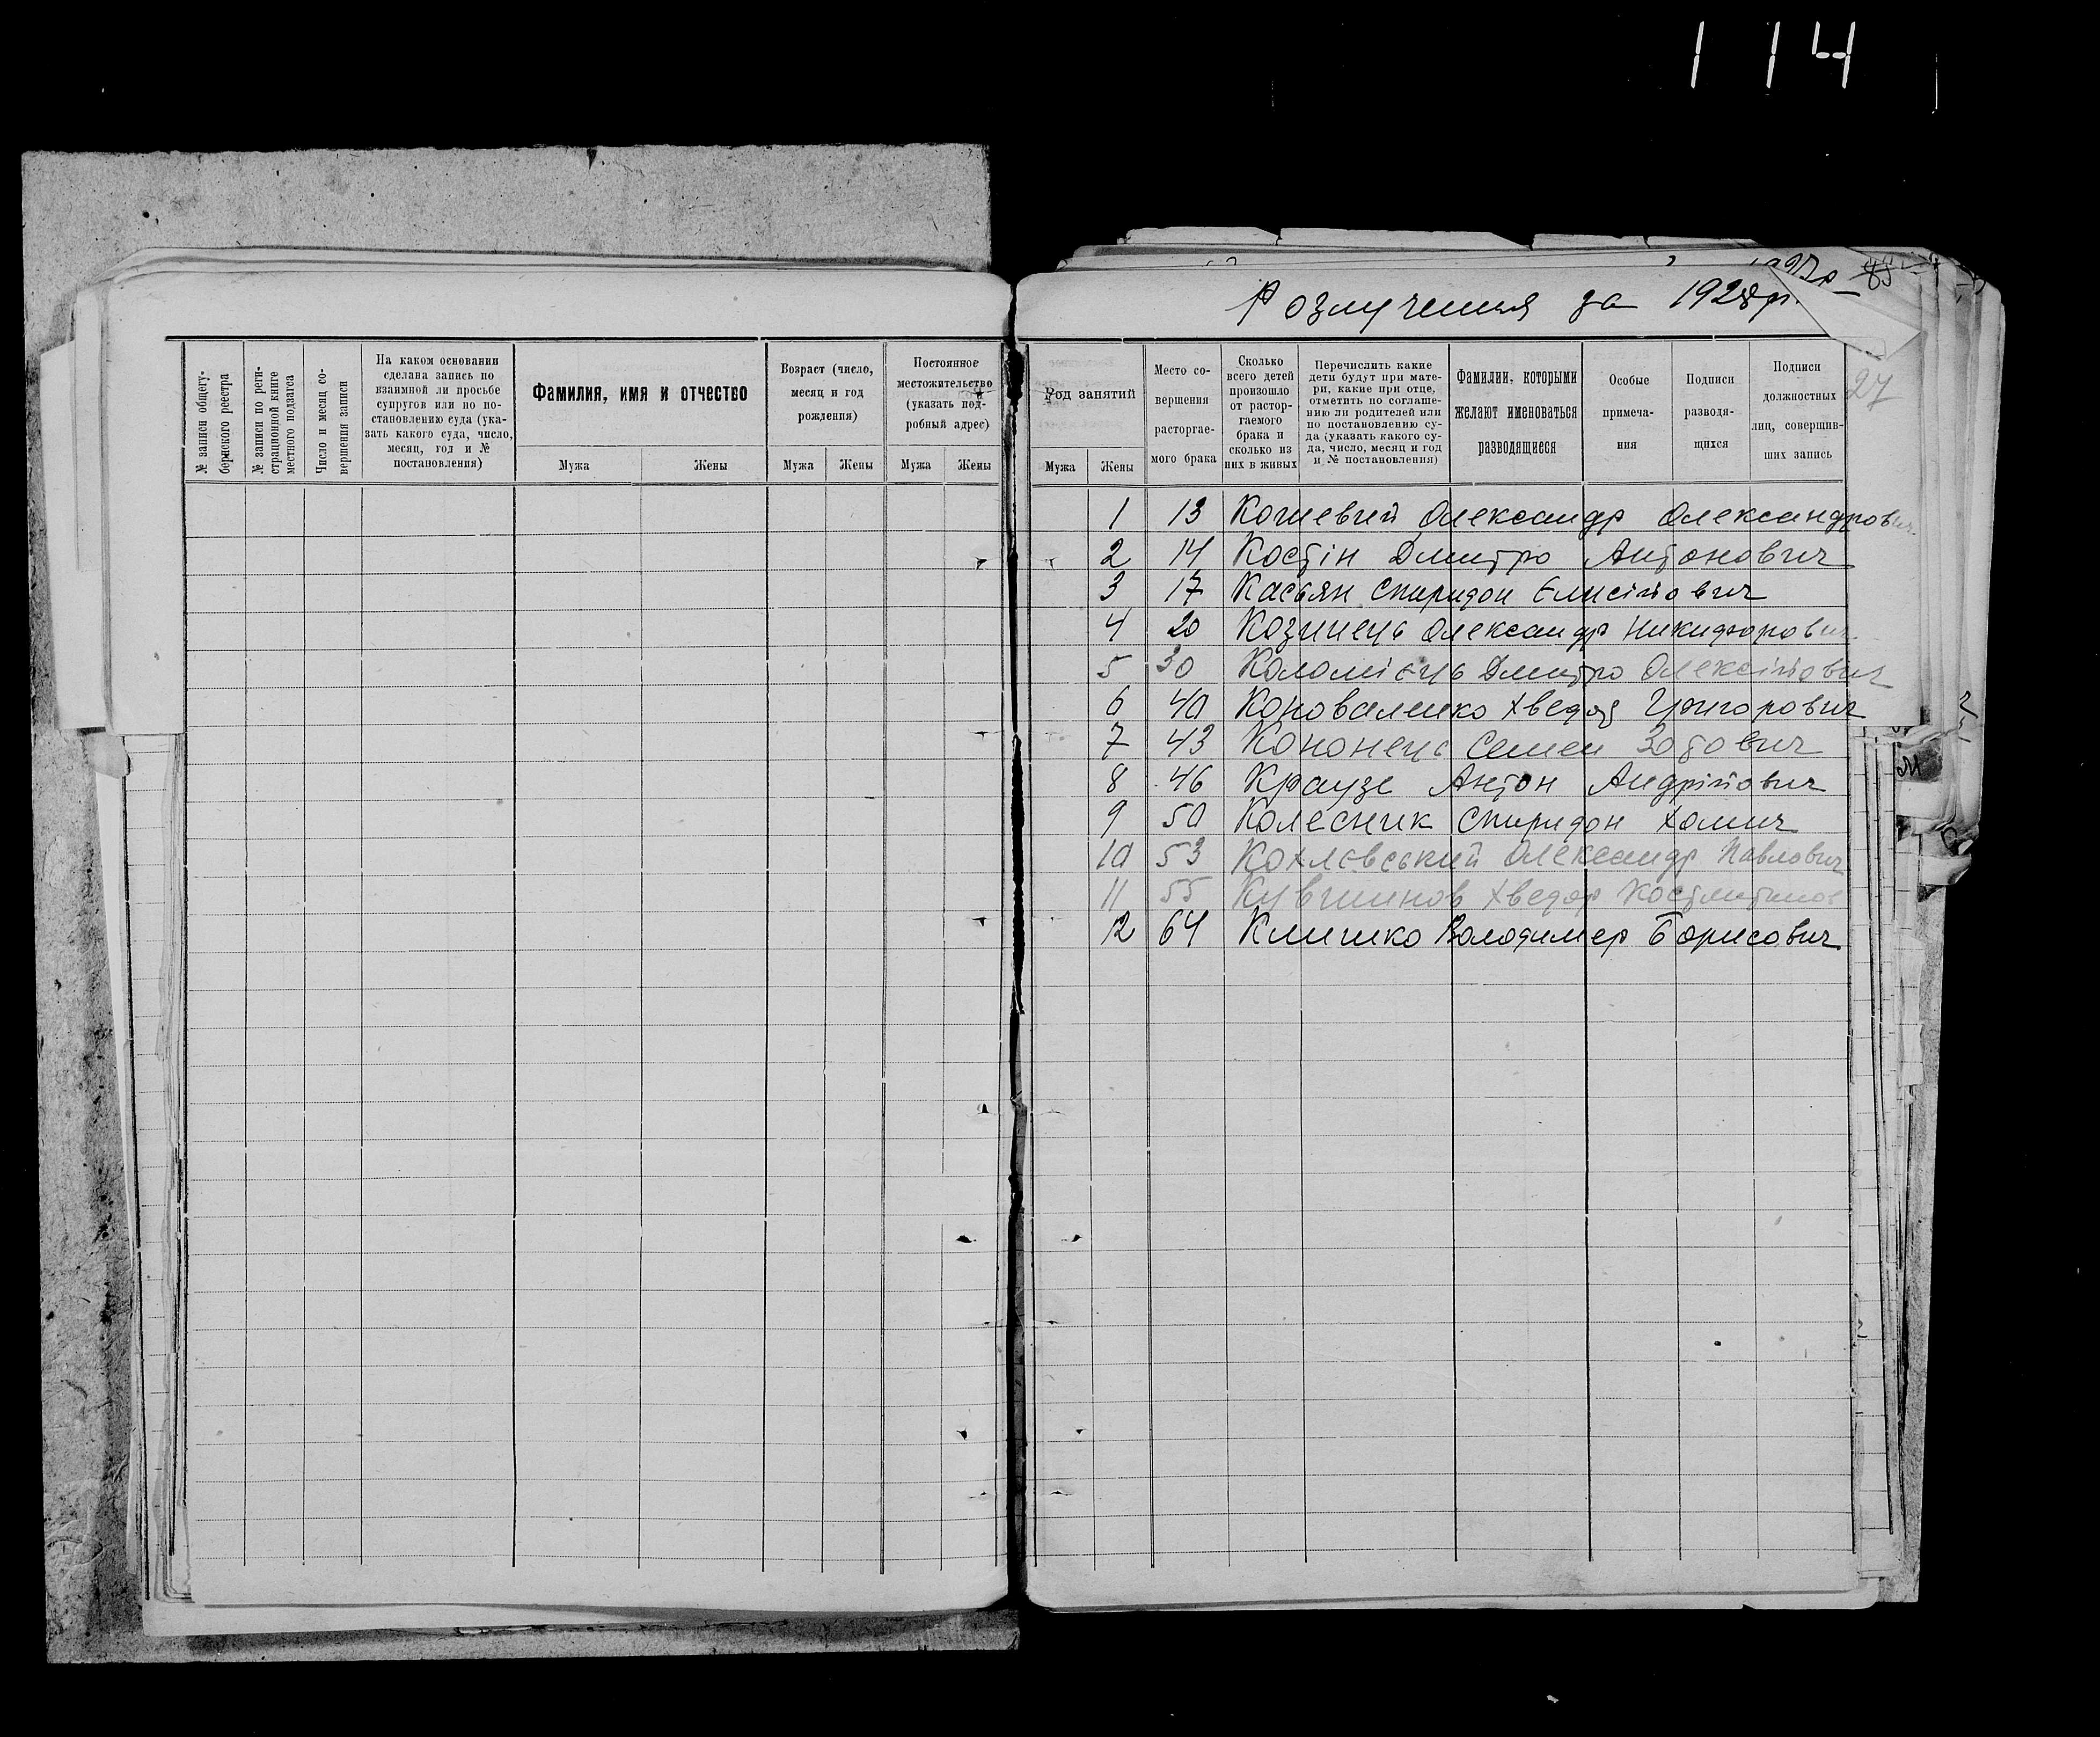 114
Розлучення за 1928 р.
85
27
№ записи общегу-
бернского реестра
№ записи по реги-
страционной книге
местного подзагса
Число и месяц со-
вершения записи
На каком основании
сделана запись по
взаимной ли просьбе
супругов или по по-
становлению суда (ука-
зать какого суда, число,
месяц, год и №
постановления)
Фамилия, имя и отчество
Мужа Жены
Возраст (число,
месяц и год
рождения)
Мужа Жены
Постоянное
местожительство
(указать под-
робный адрес)
Мужа Жены
Род занятий
Мужа Жены
Место со-
вершения
расторгае-
мого брака
Сколько
всего детей
произошло
от растор-
гаемого
брака и
сколько из
них в живых
Перечислить какие
дети будут при мате-
ри, какие при отце,
отметить по соглаше-
нию ли родителей или
по постановлению су-
да (указать какого су-
да, число, месяц и год
и № постановления)
Фамилии, которыми
желают именоваться
разводящиеся
Особые
примеча-
ния
Подписи
разводя-
щихся
Подписи
должностных
лиц, совершив-
ших запись
1 13 Кошевий Олександр Олександрович
2 14 Костін Дмитро Антонович
3 17 Касьян Спиридон Єлисійович
4 20 Козинець Олександр Никифорович
5 30 Коломієць Дмитро Олексійович
6 40 Коноваленко Хведор Григорович
7 43 Кононець Семен Зотович
8 46 Краузе Антон Андрійович
9 50 Колесник Спиридон Хомич
10 53 Кохлєвський Олександр Павлович
11 55 Кувшинов Хведор
12 64 Клишко Володимер Борисович